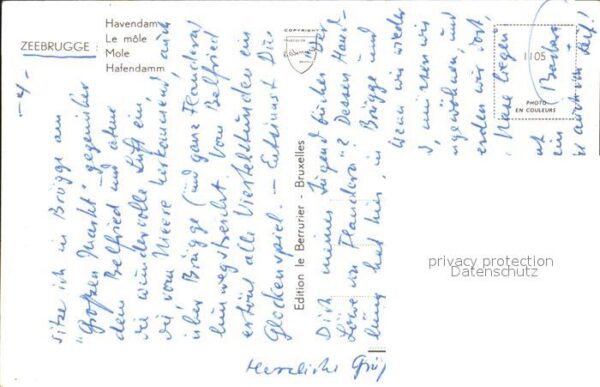 ZEEBRUGGE :
Havendam
Le môle
Mole
Hafendamm
COPYRIGHT
1105
PHOTO
EN COULEURS
Edition le Berrurier - Bruxelles
-4-
sitze ich in Brügge am
"Großen Markt" gegenüber
dem Belfried und atme
die wundervolle Luft ein,
die, vom Meere herkommend, auch
über Brügge (und ganz Flandern)
hinwegstreicht. Vom Belfried
ertönt alle Viertelstunden ein
Glockenspiel. - Entsinnst Du
Dich meiner Jugendbücher: Der
Löwe von Flandern? Dessen Hand-
lung hat hier, in Brügge und
Wenn wir wieder
müssen wir
ngewöhnen, und
erden wir dort,
Nase liegen
ein
ist auch
Herzliche Grüß
privacy protection
Datenschutz